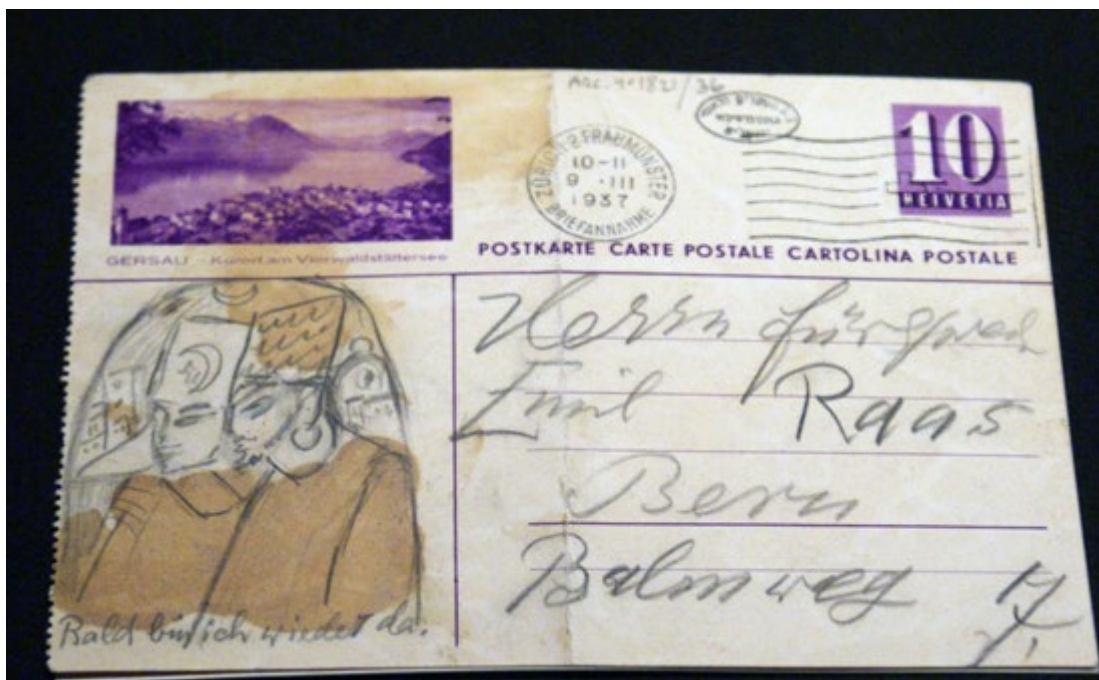 Arc. 4° 1821/36
ZÜRICH 2 FRAUMÜNSTER
10-11
9 · III
1937
BRIEFANNAHME
10
HELVETIA
GERSAU - Kurort am Vierwaldstättersee
POSTKARTE CARTE POSTALE CARTOLINA POSTALE
Herrn
Emil Raas
Bern
Balmweg
Bald bin ich wieder da.